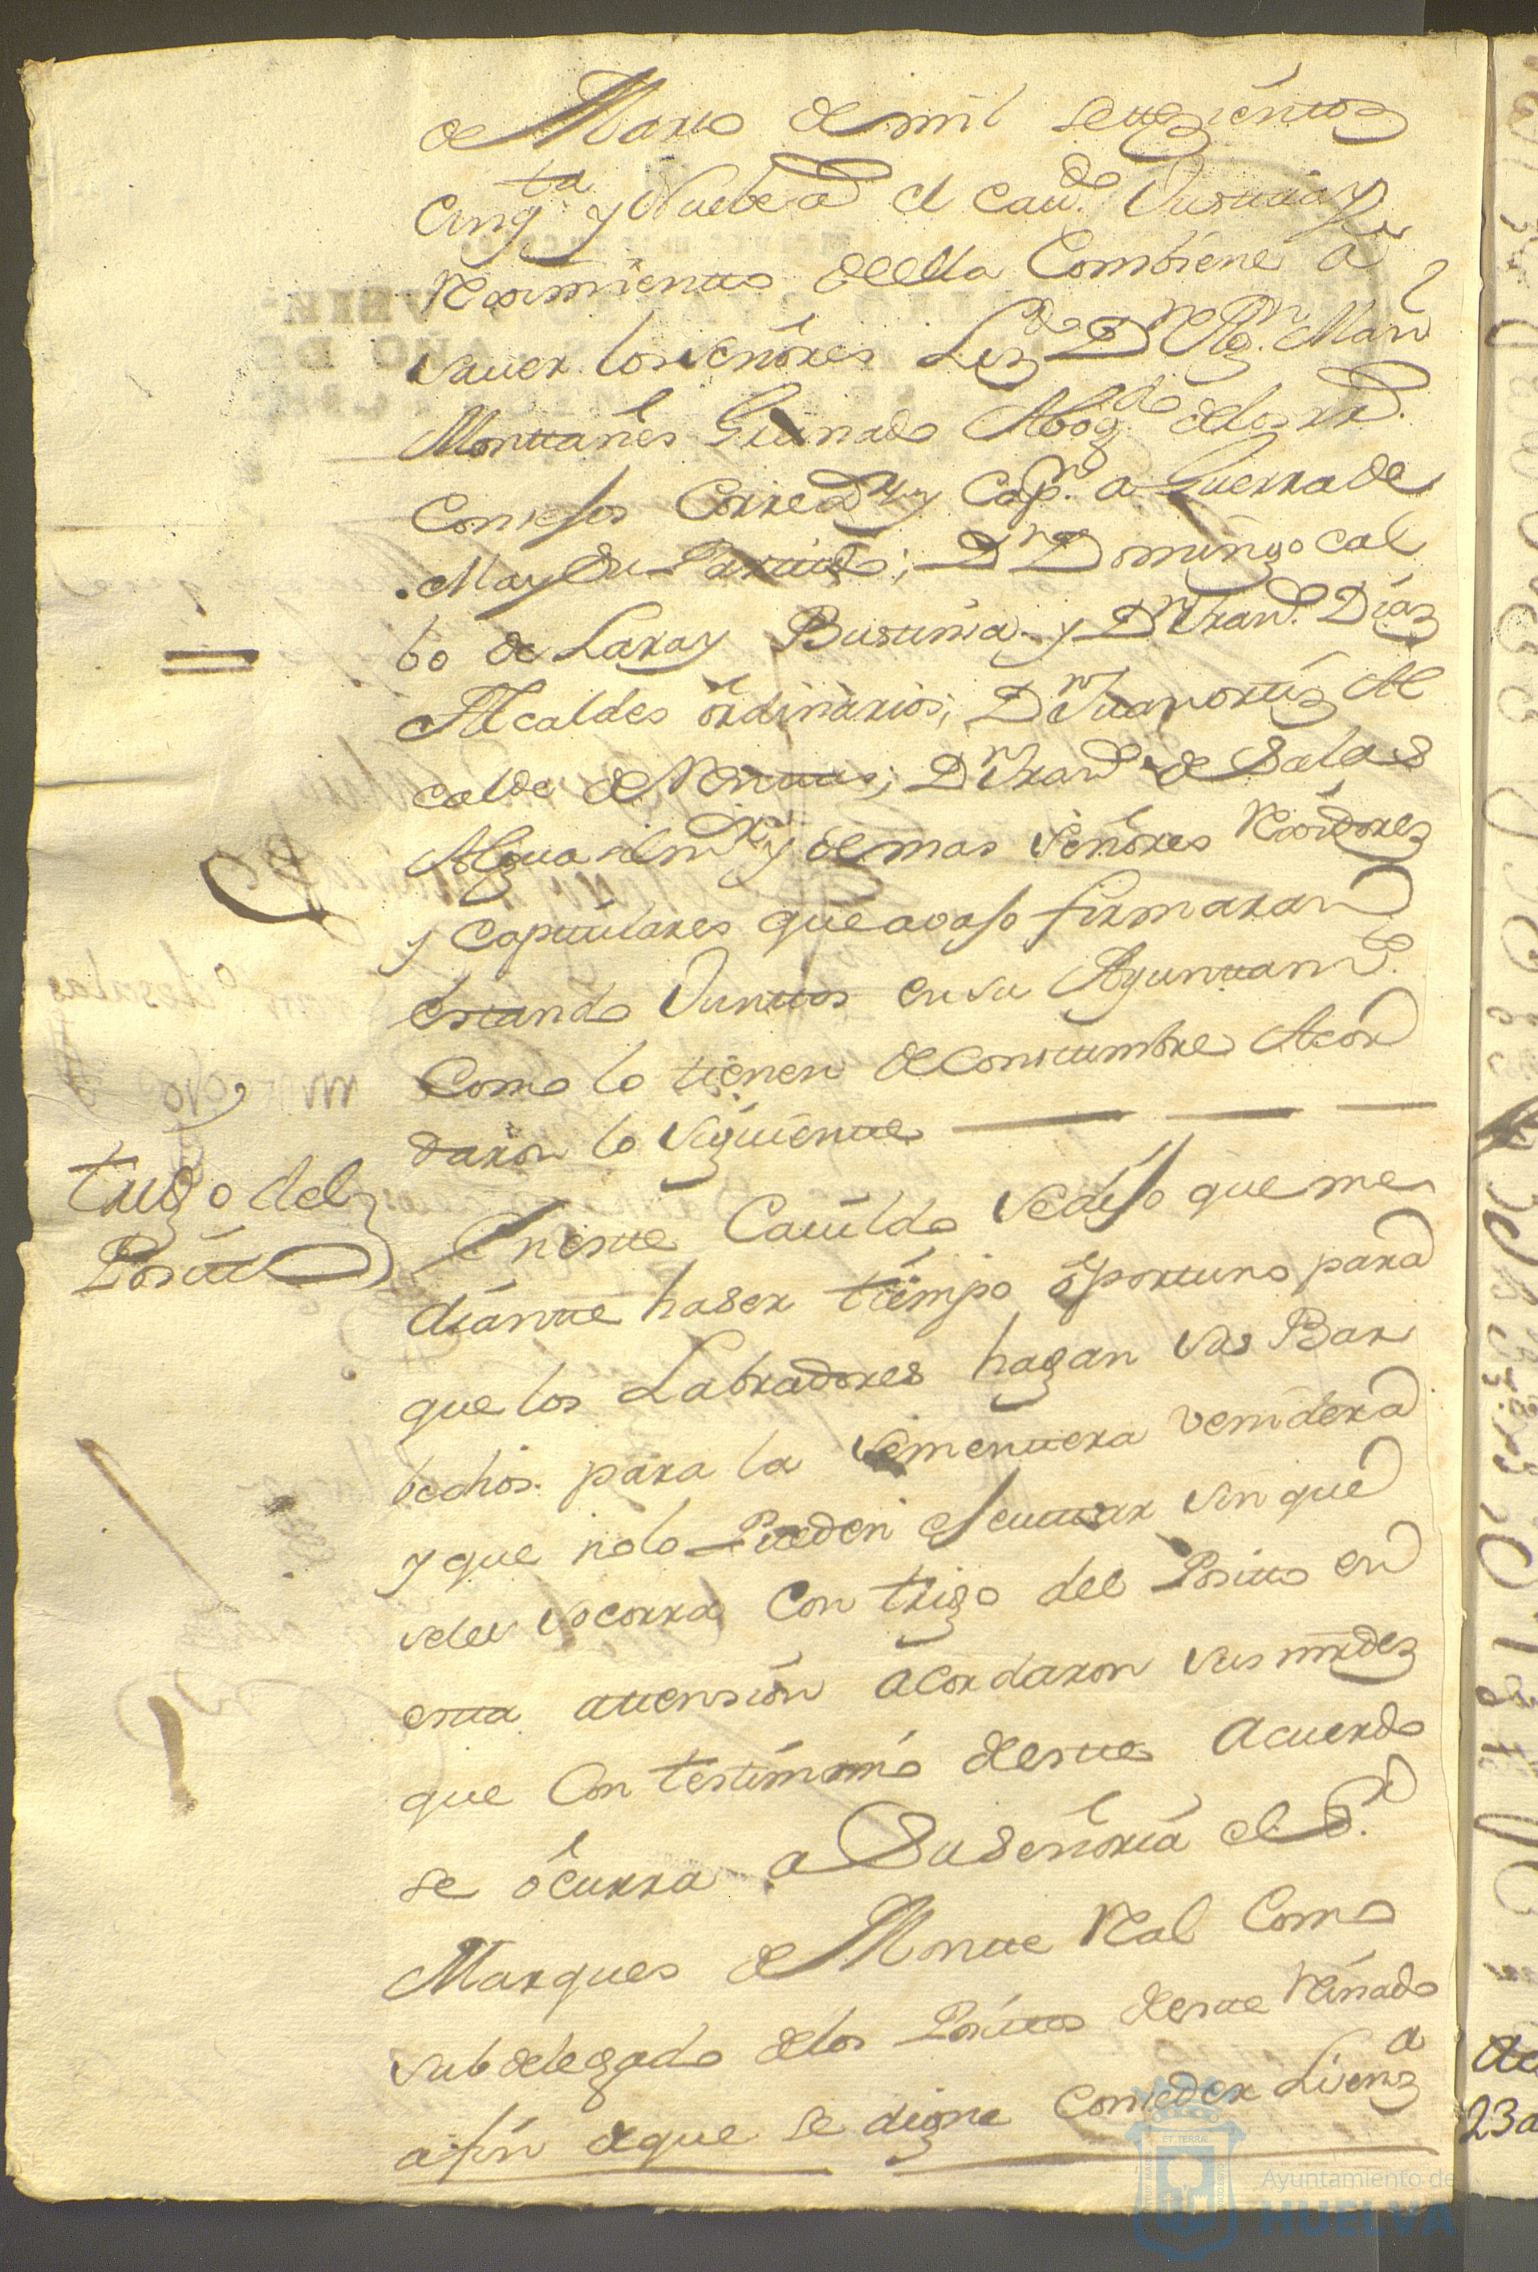 de Marzo de mil settezientoz
Cinq.ta y Nuebe a.s el cau.do Justicia y
Reximiento de ella Combiene a
sauer los señores Liz.do D.n Man.l
Montañes Grunado Abog.do de los R.s
Consejos Corre.or y Cap.n a Guerra de
May su Partido; D.n Domingo Cal
bo de Lara y Bustinia y D.n Fran.co Diaz
Alcaldes ordinarios; D.n Juan ortiz Al
calde de Rentas; D.n Fran.co de Salas
Alguasil m.or y demas señores Rexidorez
y Capitulares que avajo firmaran
estando Juntos en su Ayuntam.to
Como lo tienen de Constumbre Acor
daron lo siguiente
trigo del
Posito
En este Cauildo se dijo que me
diante haser tiempo oportuno para
que los Labradores hagan sus Bar
bechos para la sementera venidera
y que nolo Pueden ejecutar sin que
seles socorra Con trigo del Posito en
esta attension acordaron sus mrdez
que Con testimonio deste acuerdo
se ocurra a Su Señoria el S.r
Marques de Monte Real Como
subdelegado delos Positos deste Reinado
afin deque se digne Conceder Lisenz.a
Ac
23 a
ET TERRA
Ayuntamiento de
HUELVA